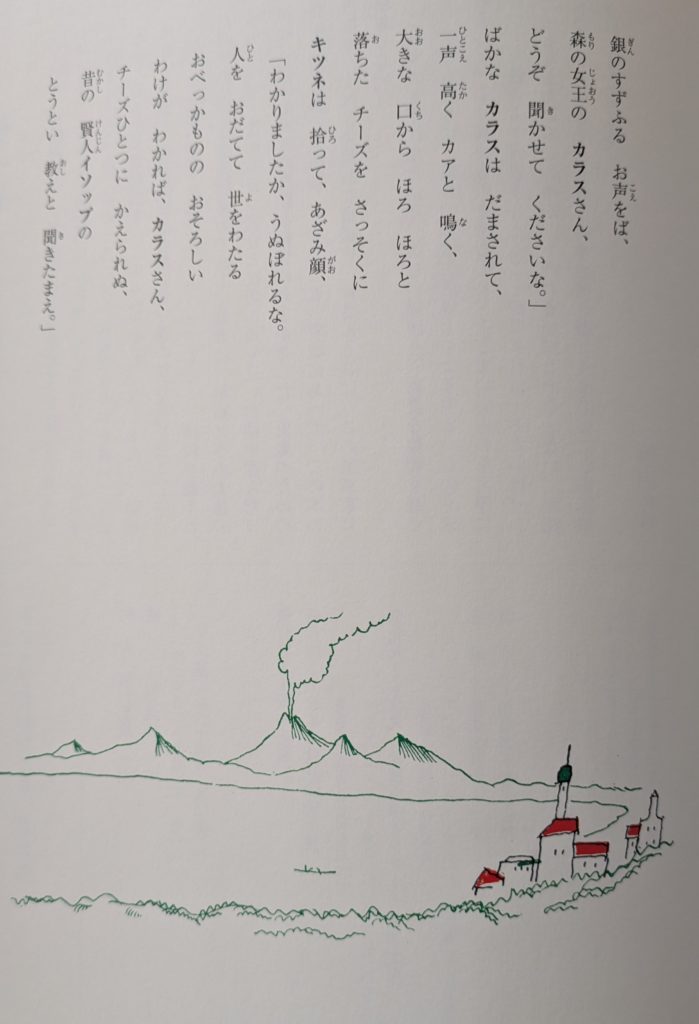 銀のすずふる　お声をば、
森の女王の　カラスさん、
どうぞ　聞かせて　くださいな。」
ばかな　カラスは　だまされて、
一声　高く　カアと　鳴く、
大きな　口から　ほろ　ほろと
落ちた　チーズを　さっそくに
キツネは　拾って、あざみ顔、
「わかりましたか、うぬぼれるな。
人を　おだてて　世をわたる
おべっかものの　おそろしい
わけが　わかれば、カラスさん、
チーズひとつに　かえられぬ、
昔の　賢人イソップの
とうとい　教えと　聞きたまえ。」